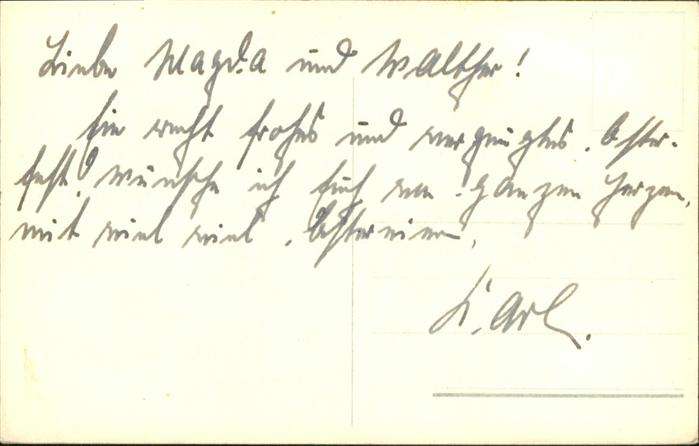 Liebe Magda und Walther!
Ein recht frohes und vergnügtes Oster-
fest, wünsche ich Euch von ganzen Herzen,
mit viel viel Ostereiern,
Karl.